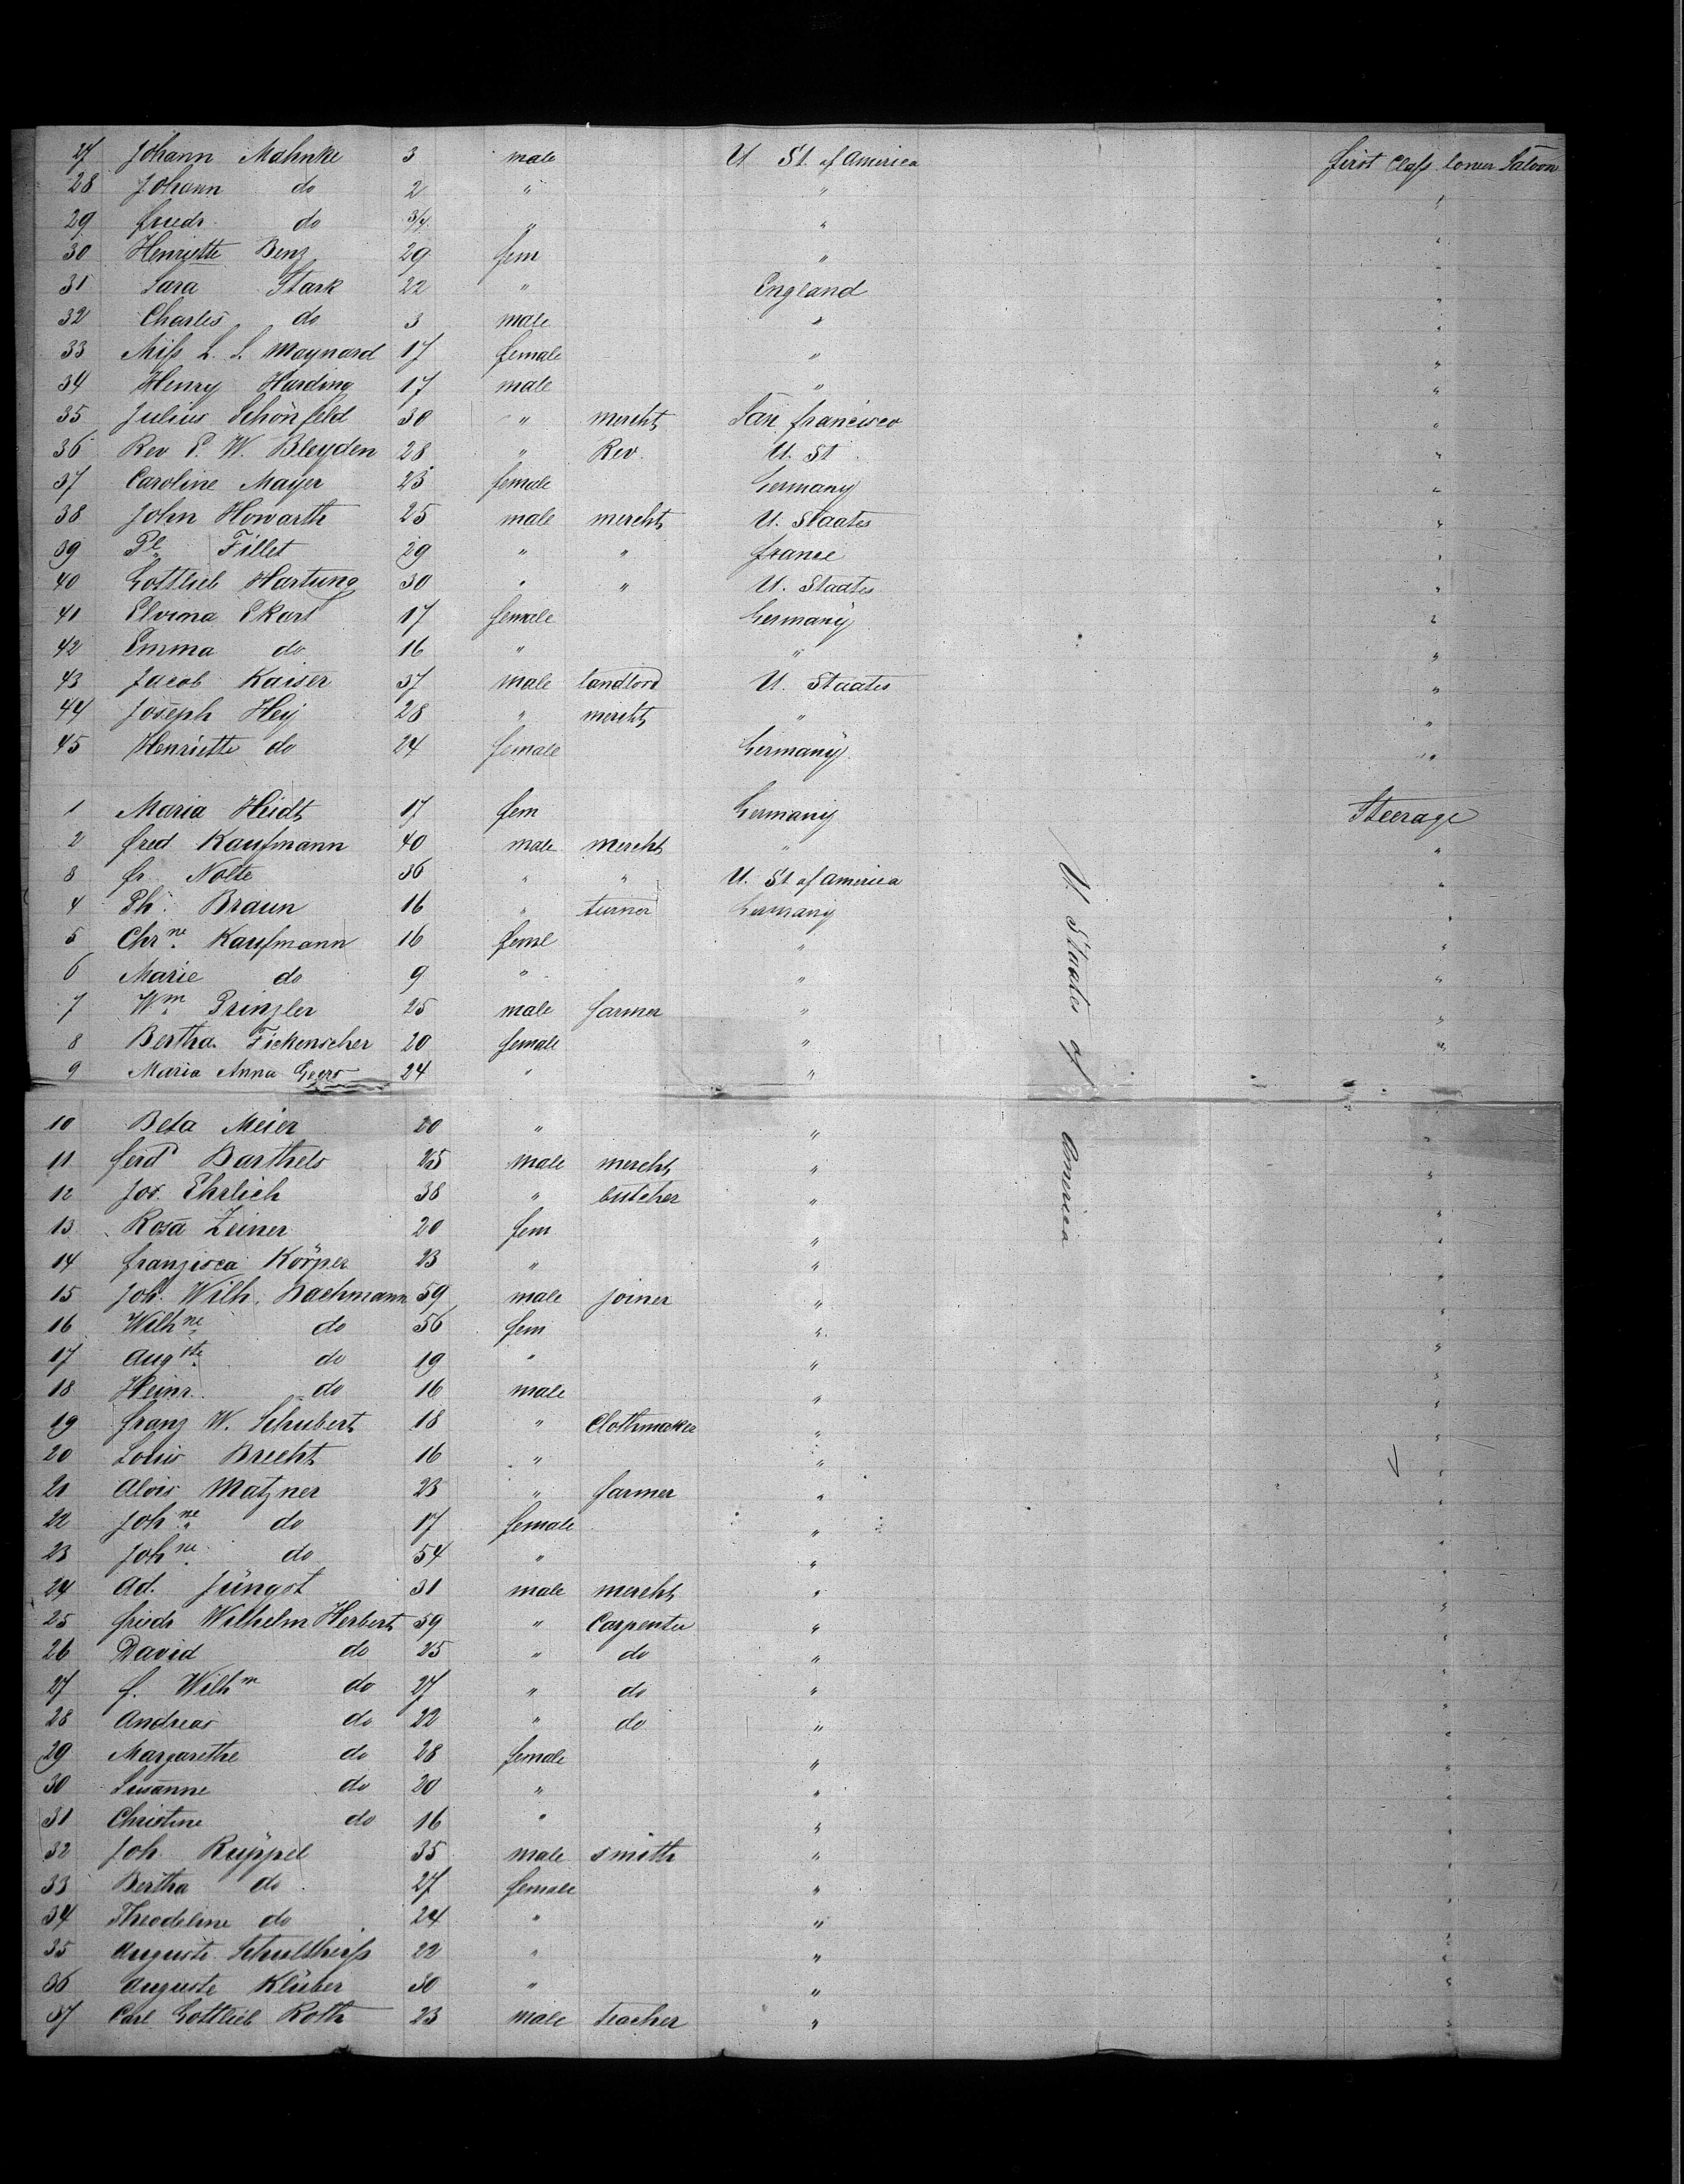 27 Johann Mahnke 3 male U St. of America first Class lower Saloon
28 Johann do 2 " " "
29 friedr do 3/4 " " "
30 Henriette Benz 29 fem " "
31 Sara Stark 22 " England "
32 Charles do 3 male " "
33 Miss L. S. Maynard 17 female " "
34 Henry Harding 17 male " "
35 Julius Schönfeld 30 " mercht San francisco "
36 Rev P. W. Bleyden 28 " Rev. U. St. "
37 Caroline Mayer 23 female Germany "
38 John Howarth 25 male mercht U. Staates "
39 Pl Fillet 29 " " france "
40 Gottlieb Hartung 30 " " U. Staates "
41 Elvina Ekart 17 female Germany "
42 Emma do 16 " " "
43 Jacob Kaiser 37 male landlord U. Staates "
44 Joseph Hey 28 " mercht " "
45 Henriette do 24 female Germany "
1 Maria Heidt 17 fem Germany Steerage
2 fred Kaufmann 40 male mercht " "
3 fr. Nolte 36 " " U. St of America "
4 Ph. Braun 16 " turner Germany "
5 Chrne Kaufmann 16 feml " "
6 Marie do 9 " " "
7 Wm Prinzler 25 male farmer " "
8 Bertha Fickenscher 20 female " "
9 Maria Anna Geers 24 " "
U. Staates of America
10 Beta Meier 20 " " "
11 ferd Barthels 25 male mercht " "
12 Jos. Ehrlich 38 " butcher " "
13 Rosa Zeiner 20 fem " "
14 franzisca Körper 23 " " "
15 Joh. Wilh. Bachmann 59 male joiner " "
16 Wilhne do 56 fem " "
17 Augste do 19 " " "
18 Heinr. do 16 male " "
19 franz W. Schubert 18 " Clothmaker " "
20 Louis Brecht 16 " " "
21 Alois Matzner 23 " farmer " "
22 Johne do 17 female " "
23 Johne do 54 " " "
24 Ad. Jüngst 31 male mercht " "
25 friedr Wilhelm Herbert 59 " Carpenter " "
26 David do 25 " do " "
27 f. Wilhm do 27 " do " "
28 Andreas do 22 " do " "
29 Margarethe do 28 female " "
30 Susanne do 20 " " "
31 Christine do 16 " " "
32 Joh. Rüppel 35 male smith " "
33 Bertha do 27 female " "
34 Theodeline do 24 " " "
35 Auguste Schultheiss 22 " " "
36 Auguste Klüber 30 " " "
37 Carl Gottlieb Roth 23 male teacher " "